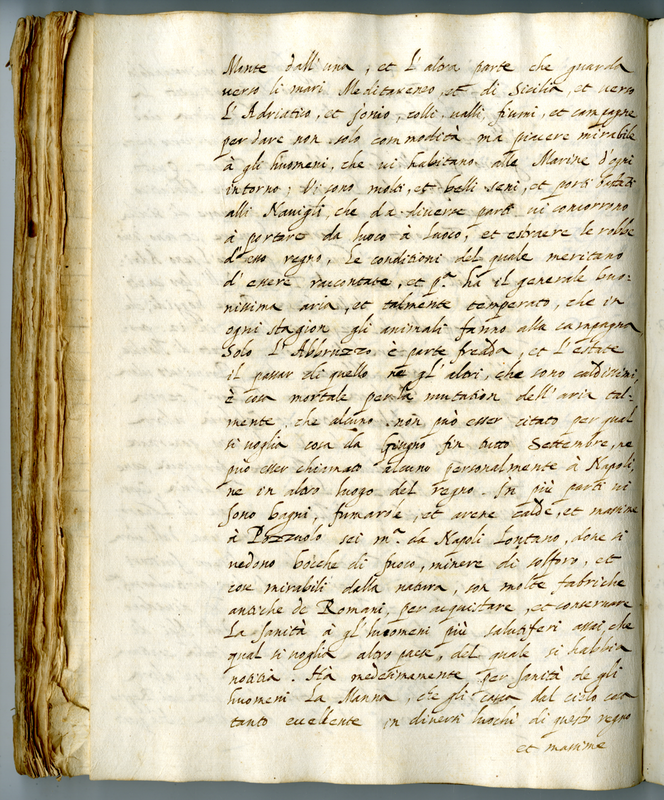 Monte dall'una, et l'altra parte che guarda
verso li mari Meditareneo, et di Sicilia, et verso
l'Adriatico, et Jonio, colli valli, fiumi, et campagne
per dare non solo commodità ma piacere mirabile
à gli huomeni, che vi habitano alle Marine d'ogni
intorno; Vi sono molti, et belli seni, et porti
alli Navigli, che da diverse parti vi concorrono
à portare da luoco à luoco, et estraere le robbe
d'esso regno, le conditioni del quale meritano
d'essere raccontate, et p.ª ha il generale buo-
nissima aria, et talmente temperato, che in
ogni stagion gli animali fanno alla campagna
Solo l'Abbruzzo è parte fredda, et l'estate
il passar di quello ne gl'altri, che sono caldissimi,
è cosa mortale per la mutation dell'aria tal-
mente che alcuno non può esser citato per qual
si voglia cosa da Giugno fin tutto Settembre, ne
può esser chiamato alcuno personalmente à Napoli,
ne in altro luogo del regno. In più parti vi
sono bagni, fumarole, et arene calde, et massime
à Pozzuolo sei m.ª da Napoli lontano, dove si
vedono bocche di fuoco, minere di solforo, et
cose mirabili dalla natura, con molte fabriche
antiche de Romani, per acquistare, et conservare
la sanità à gl'huomeni più salutiferi assai, che
qual si voglia altro paese, del quale si habbia
notitia. Ha medesimamente per sanità de gli
huomeni la Manna, che gli casca dal cielo cosa
tanto eccellente in diversi luochi di questo regno
et massime